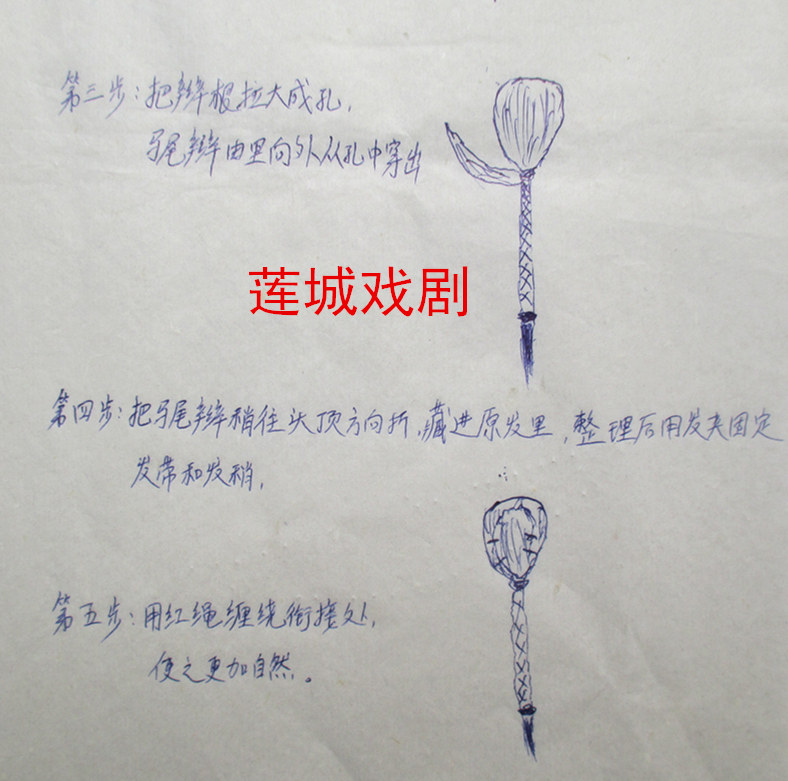 第三步:把辫根拉大成孔,
马尾辫由里向外从孔中穿出
莲城戏剧
第四步:把马尾辫稍往头顶方向折,藏进原发里,整理后用发夹固定
发带和发稍,
第五步:用红绳缠绕衔接处,
使之更加自然。